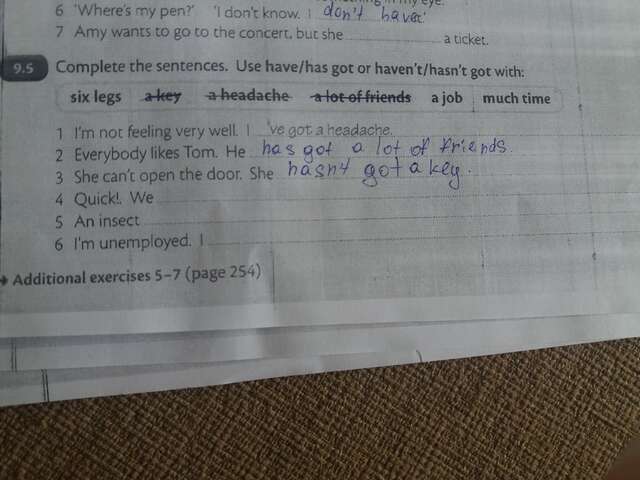 6 'Where's my pen?' 'I don't know. I don't have it'
7 Amy wants to go to the concert, but she a ticket.
9.5 Complete the sentences. Use have/has got or haven't/hasn't got with:
six legs a key a headache a lot of friends a job much time
1 I'm not feeling very well. I 've got a headache.
2 Everybody likes Tom. He has got a lot of friends.
3 She can't open the door. She hasn't got a key.
4 Quick!. We
5 An insect
6 I'm unemployed. I
→ Additional exercises 5–7 (page 254)